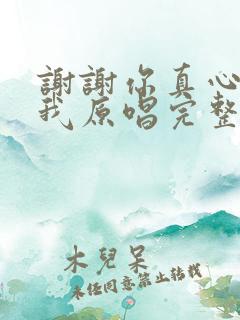 謝謝你真心
我原唱完整
木兒呆
未任同意禁止转载